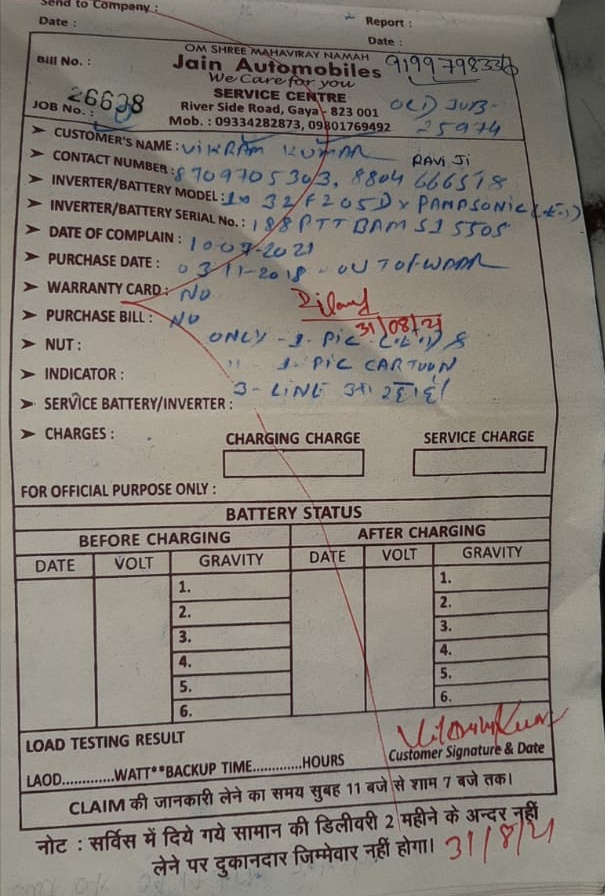 Send to Company :
Date :
Report :
Date :
OM SHREE MAHAVIRAY NAMAH
Bill No. :
Jain Automobiles
9199798336
We Care for you
SERVICE CENTRE
JOB No. : 26628
River Side Road, Gaya - 823 001
OLD JOB-
Mob. : 09334282873, 09801769492
25974
➤ CUSTOMER'S NAME : VIKRAM KUMAR RAVI JI
➤ CONTACT NUMBER : 8709705303, 8804 666518
➤ INVERTER/BATTERY MODEL : 32F205DX PANASONIC
➤ INVERTER/BATTERY SERIAL No. : 188PTTBAMS15505
➤ DATE OF COMPLAIN : 10-07-2021
➤ PURCHASE DATE : 03-11-2018 - OUT OF WARR
➤ WARRANTY CARD : NO
31/08/21
➤ PURCHASE BILL : NO
➤ NUT : ONLY - 1. PIC &
➤ INDICATOR : " 1. PIC CARTOON
➤ SERVICE BATTERY/INVERTER : 3 - LINE आ रहा है
➤ CHARGES :
CHARGING CHARGE SERVICE CHARGE
FOR OFFICIAL PURPOSE ONLY :
BATTERY STATUS
BEFORE CHARGING AFTER CHARGING
DATE VOLT GRAVITY DATE VOLT GRAVITY
1. 1.
2. 2.
3. 3.
4. 4.
5. 5.
6. 6.
LOAD TESTING RESULT
Customer Signature & Date
LAOD.............WATT**BACKUP TIME............HOURS
CLAIM की जानकारी लेने का समय सुबह 11 बजे से शाम 7 बजे तक।
नोट : सर्विस में दिये गये सामान की डिलीवरी 2 महीने के अन्दर नहीं
लेने पर दुकानदार जिम्मेवार नहीं होगा। 31/8/21